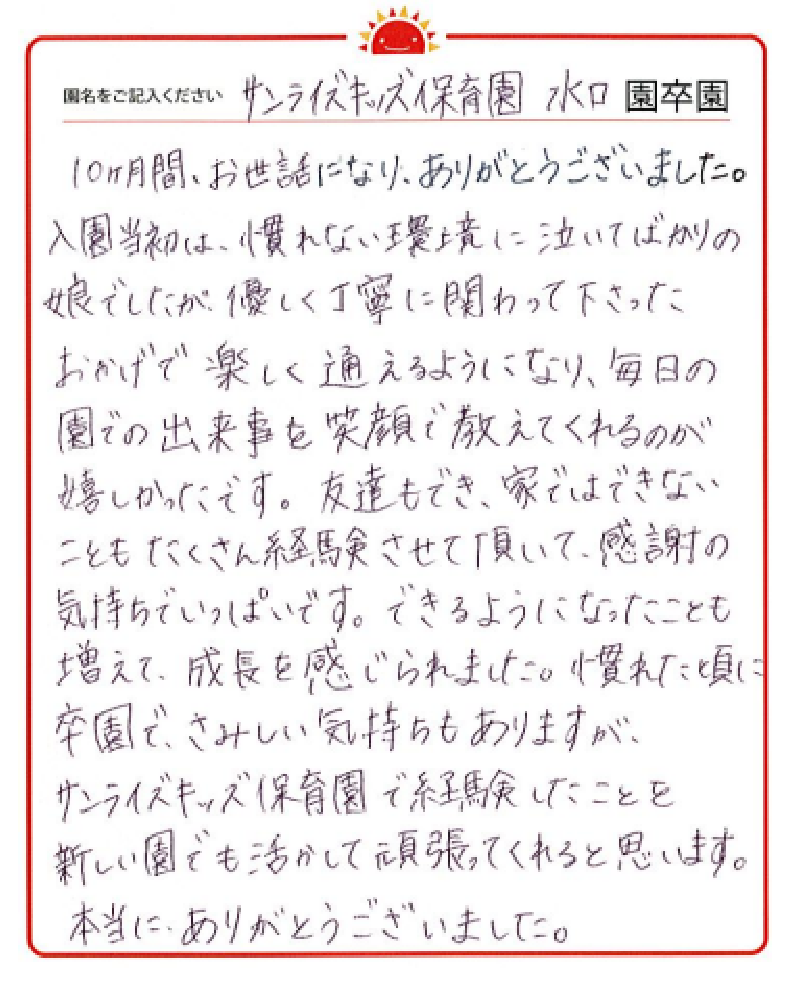 園名をご記入ください サンライズキッズ保育園 水口 園卒園
10ヶ月間、お世話になり、ありがとうございました。
入園当初は、慣れない環境に泣いてばかりの
娘でしたが、優しく丁寧に関わって下さった
おかげで楽しく通えるようになり、毎日の
園での出来事を笑顔で教えてくれるのが
嬉しかったです。友達もでき、家ではできない
こともたくさん経験させて頂いて、感謝の
気持ちでいっぱいです。できるようになったことも
増えて、成長を感じられました。慣れた頃に
卒園で、さみしい気持ちもありますが、
サンライズキッズ保育園で経験したことを
新しい園でも活かして頑張ってくれると思います。
本当に、ありがとうございました。